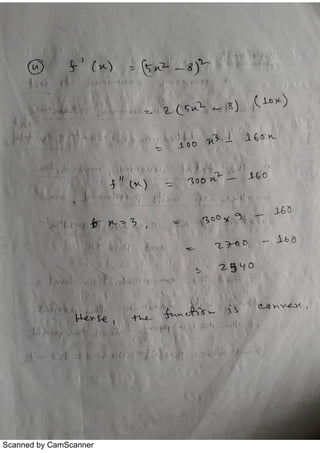 (u) f'(x) = (5x² - 8)²
= 2(5x² - 8) (10x)
= 100 x³ - 160x
f''(x) = 300x² - 160
x = 3, = 300 x 9 - 160
= 2700 - 160
= 2540
Hense, the function is convex.
Scanned by CamScanner